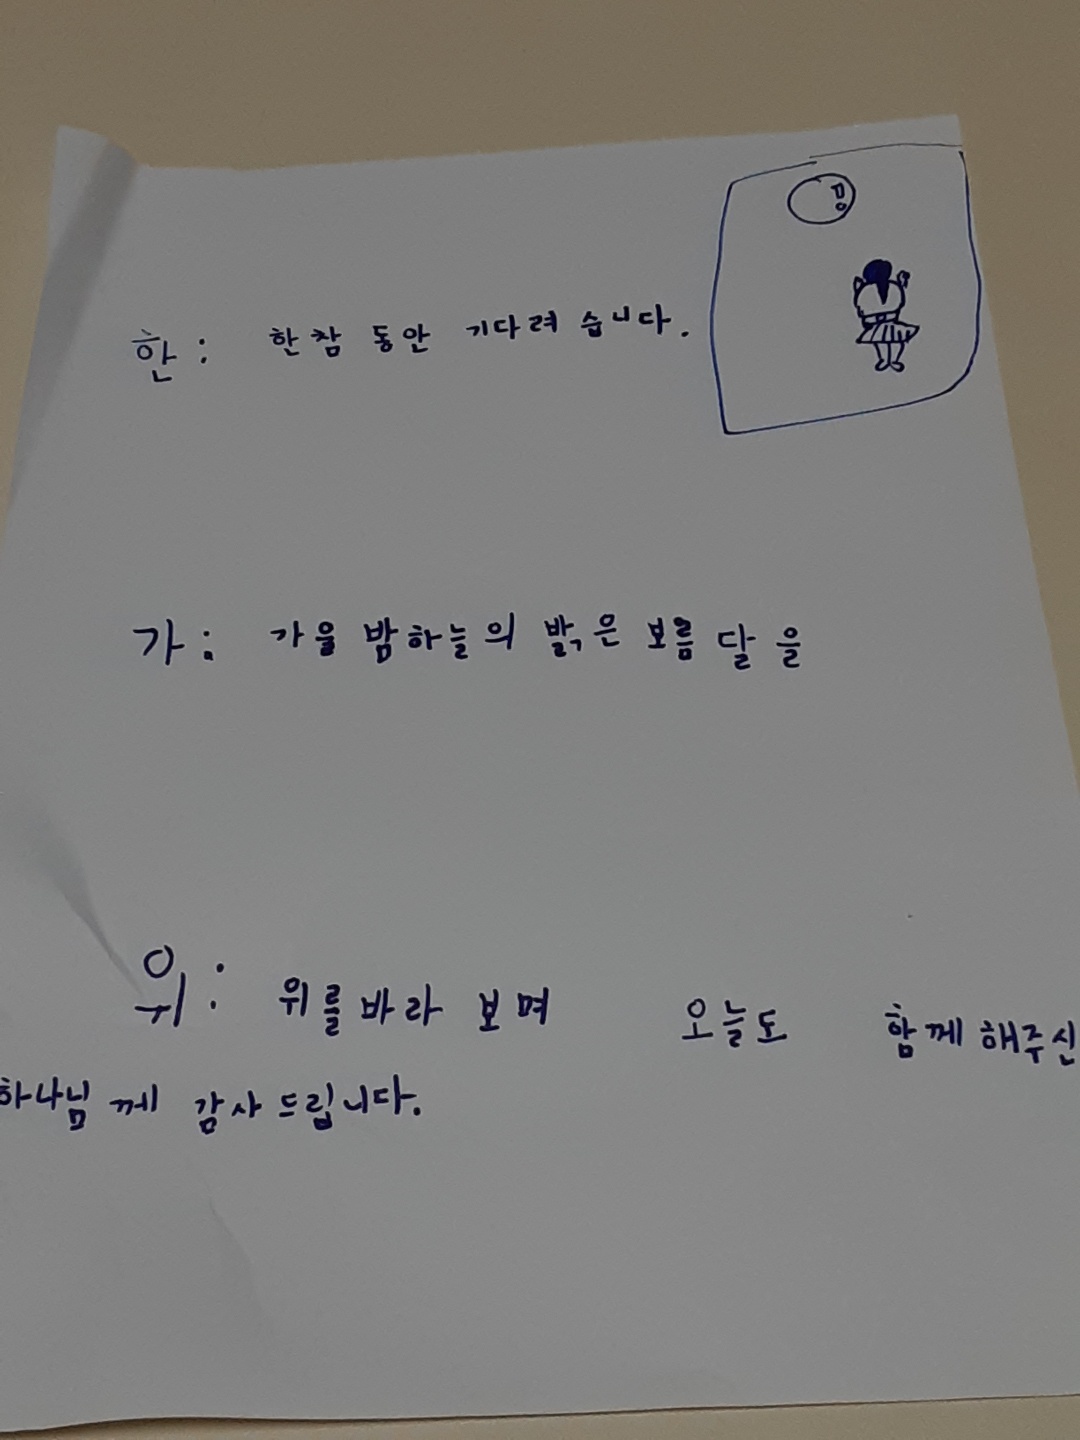 한: 한참 동안 기다려 습니다.
가: 가을 밤하늘의 밝은 보름달을
위: 위를 바라보며 오늘도 함께 해주신
하나님께 감사드립니다.